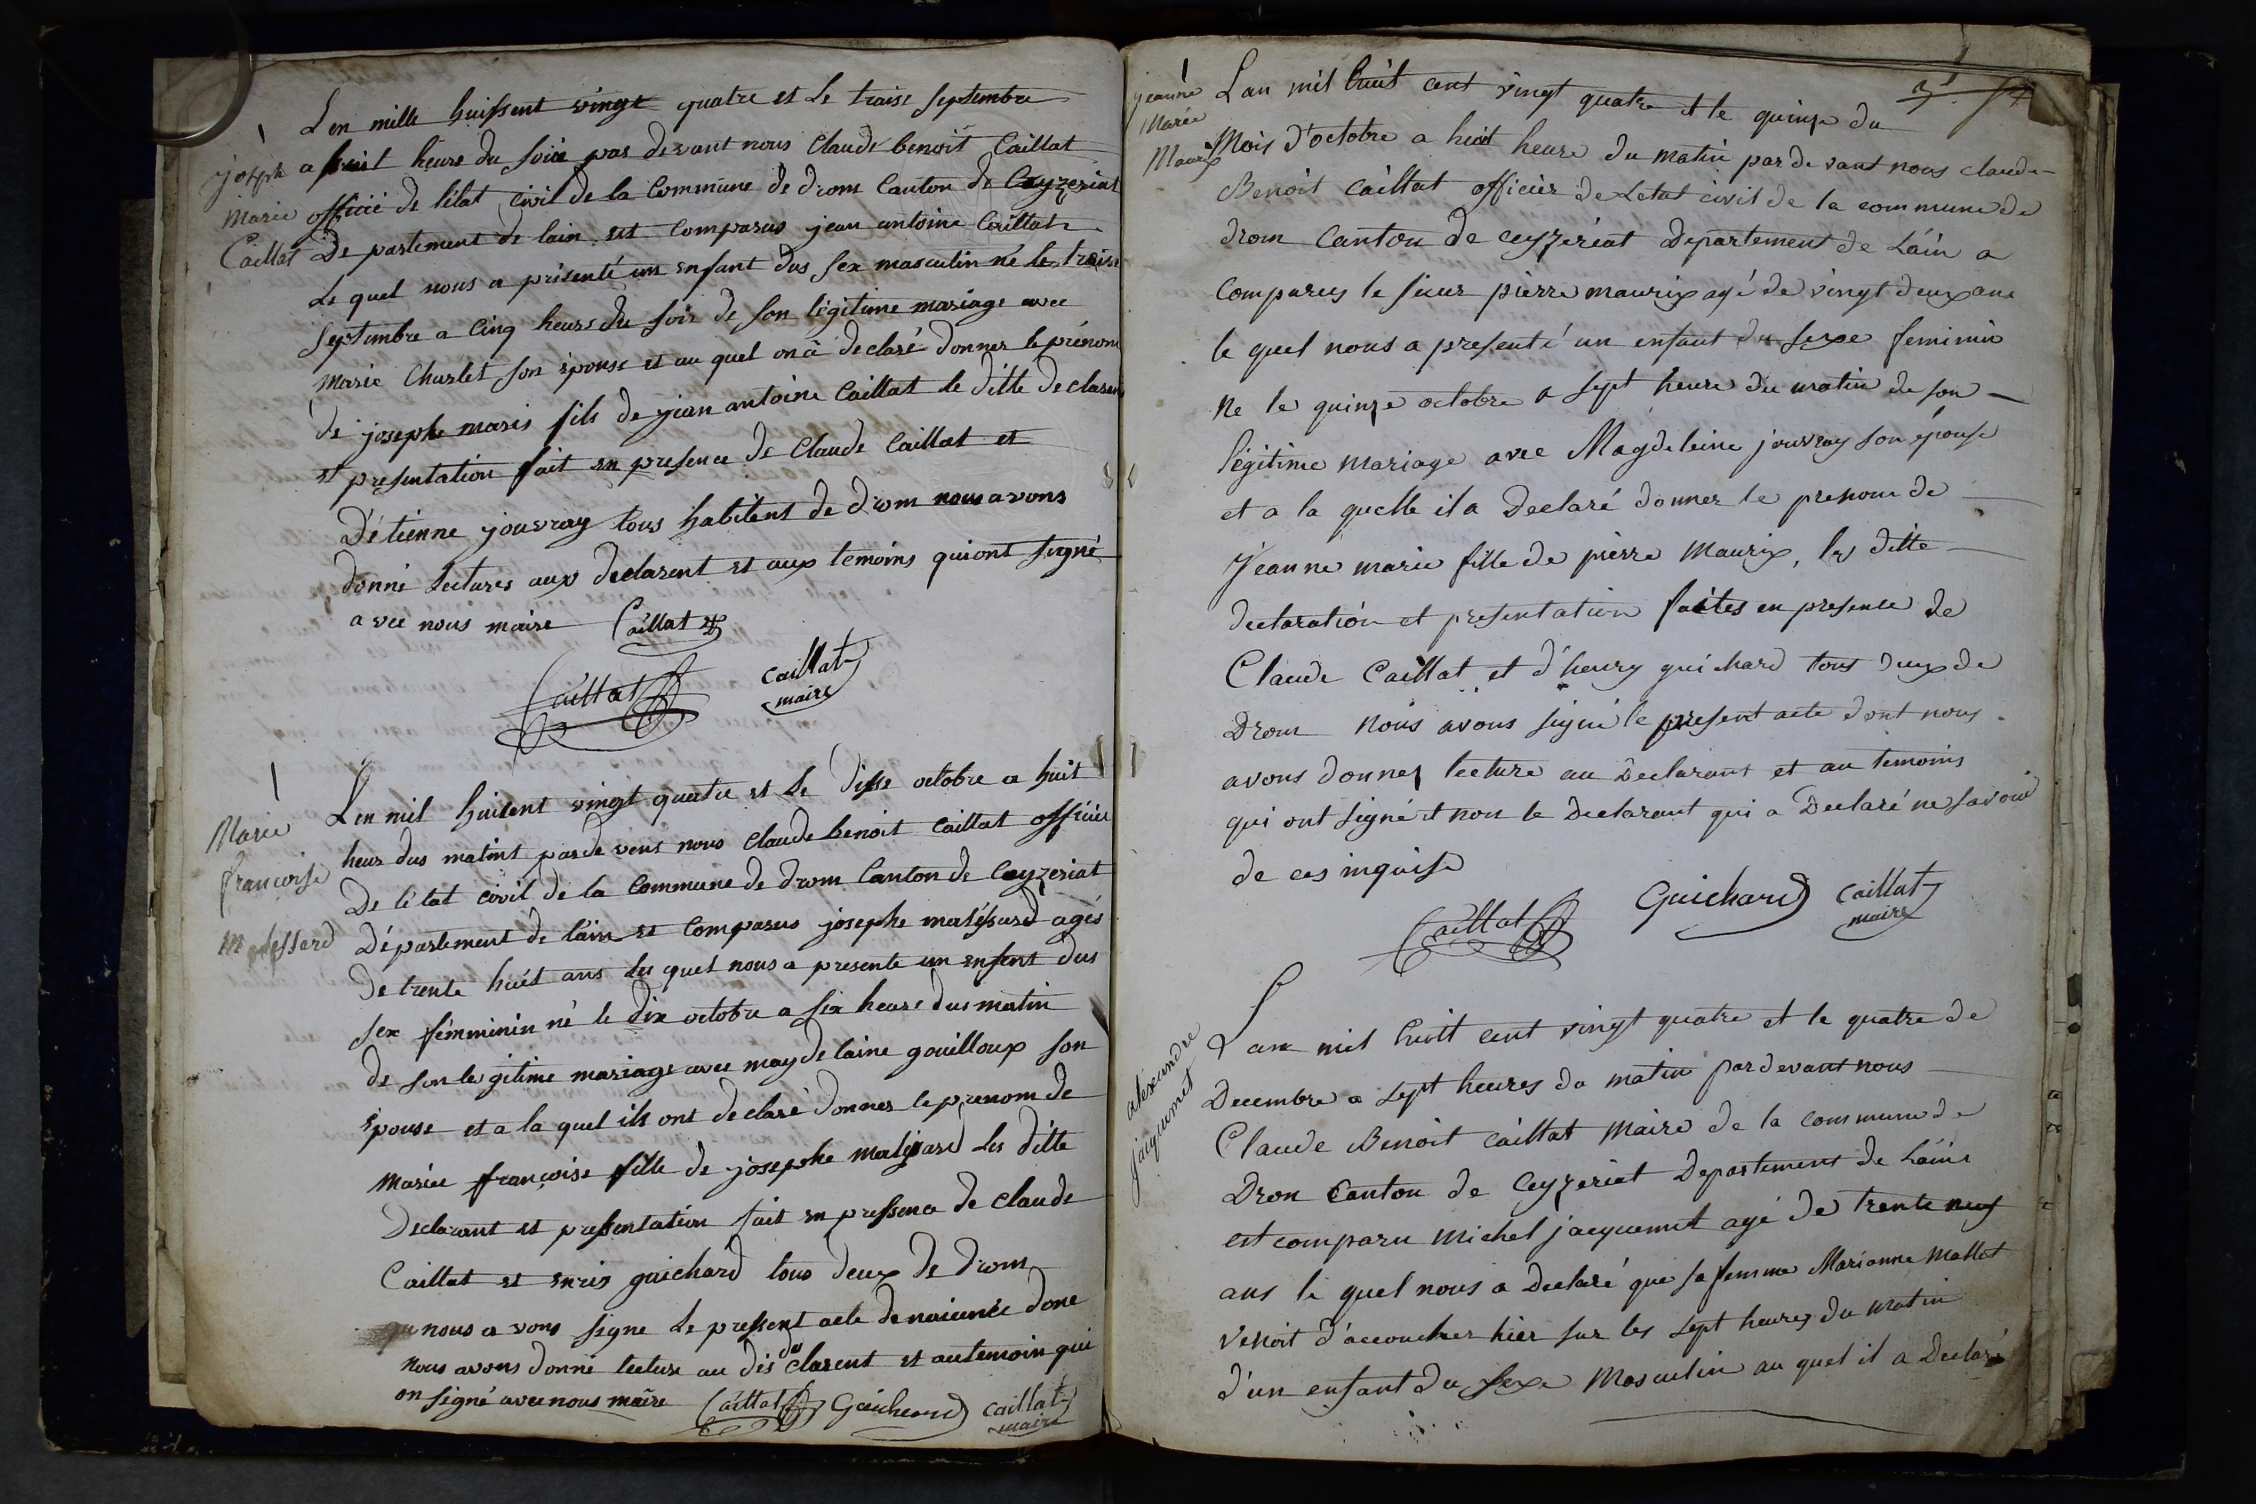 joseph
Marie
Caillat
L'en mille huissent vingt quatre et le traise septembre
a huit heure du soire par devant nous Claude benoit Caillat
officié de l'état civil de la Commune de drom Canton de Ceyzeriat
De partement de lain est Comparus jean antoine Caillat
Le quel nous a présenté un enfant dus sex masculin né le traise
septembre a Cinq heure du soir de son légitime mariage avec
Marie Charlet son épouse et au quel on à declaré donner le prénom
de josephe maris fils de jean antoine Caillat le ditte declarent
et presentation fait en presence de Claude Caillat et
D'étienne jouvray tous habitent de drom nous avons
donné lectures aux declarent et aux temoins qui ont signé
avec nous maire Caillat
Caillat caillat
maire
Marie
francoise

L'en mil huitent vingt quatre et le disse octobre a huit
heur dus matint parde vent nous Claude benoit Caillat officier
De l'état civil de la Commune de drom Canton de Ceyzeriat
Département de l'ain et Comparus josephe agés
de trente huit ans lu quel nous a presente un enfent dus
sex fémminin né le dix octobre a six heure dus matin
de son le gitime mariage avec mayde laine gouilloux son
épouse et a la quel ils ont declaré donner le prenom de
Mariee françoise fille de josephe les ditte
Declarant et pressentation fait en pressence de Claude
Caillat et enris guichard tous deux de drom
nous avons signe le pressent acte de naicence donc
nous avons donné lecture au dis de clarent et au temoin qui
on signé avec nous maire Caillat Guichard caillat
maire
jeanne
Marie
Maurix
L'an mil huit cent vingt quatre et le quinze du
Mois d'octobre a huit heure du matin par de vant nous claude
Benoit Caillat officier de Letat civil de la commune de
drom Canton de ceyzériat Departement de L'ain a
Comparus le sieur pierre maurix agé de vingt deux ans
le quel nous a presenté un enfant du sexe feminin
ne le quinze octobre a sept heure du matin de son
légitime mariage avec Magdeleine jouvray son épouse
et a la quelle il a Declaré donner le prenom de
Jeanne marie fille de pierre Maurix, les ditte
declaration et presentation faites en presence de
Claude Caillat et d'henry guichard tous deux de
Drom nous avons signé le present acte dont nous
avons donnez lecture au Declarant et au temoins
qui ont signé et non le Declarant qui a Declaré ne savoir
de ces inquise
Caillat Guichard caillat
maire
alexandre
jacquemet
L'an mil huitt cent vingt quatre et le quatre de
Decembre a sept heures du matin pardevant nous
Claude Benoit Caillat Maire de la commune de
Dron Canton de Ceyzeriat Departement de L'ain
est comparu Michel jacquemet agé de trente neuf
ans le quel nous a Declaré que sa femme Marianne Mallet
Venoit d'accoucher hier sur les sept heures du matin
d'un enfant du sexe Masculin au quel il a Declaré